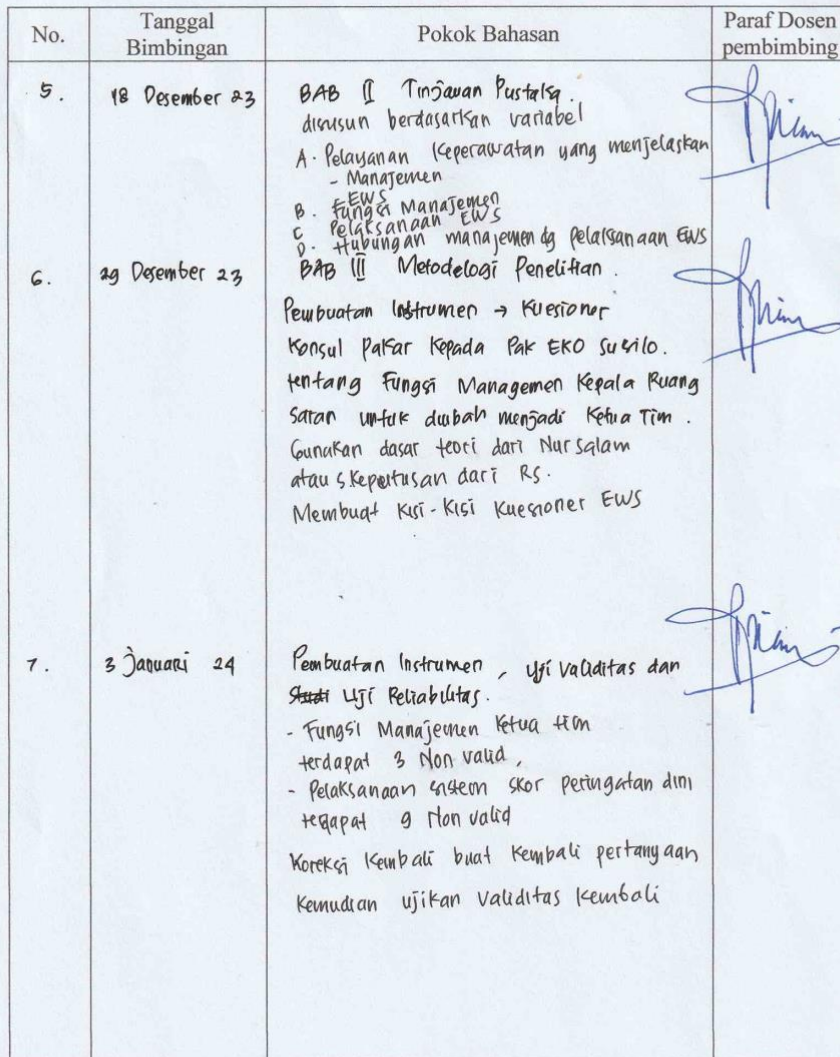 No. Tanggal Bimbingan Pokok Bahasan Paraf Dosen pembimbing
5. 18 Desember 23 BAB II Tinjauan Pustaka.
disusun berdasarkan variabel
A. Pelayanan Keperawatan yang menjelaskan
- Manajemen
- EWS
B. Fungsi Manajemen
C Pelaksanaan EWS
D. Hubungan manajemen dg pelaksanaan EWS
6. 29 Desember 23 BAB III Metodelogi Penelitian.
Pembuatan Instrumen → Kuesioner
Konsul Pakar Kepada Pak EKO Susilo.
tentang Fungsi Managemen Kepala Ruang
Saran untuk diubah menjadi Ketua Tim.
Gunakan dasar teori dari Nursalam
atau SKeputusan dari RS.
Membuat Kisi-Kisi Kuesioner EWS
7. 3 Januari 24 Pembuatan Instrumen, Uji Validitas dan
Studi Uji Reliabilitas.
- Fungsi Manajemen Ketua tim
terdapat 3 Non valid,
- Pelaksanaan sistem skor peringatan dini
terdapat 9 Non valid
Koreksi Kembali buat Kembali pertanyaan
Kemudian ujikan Validitas Kembali